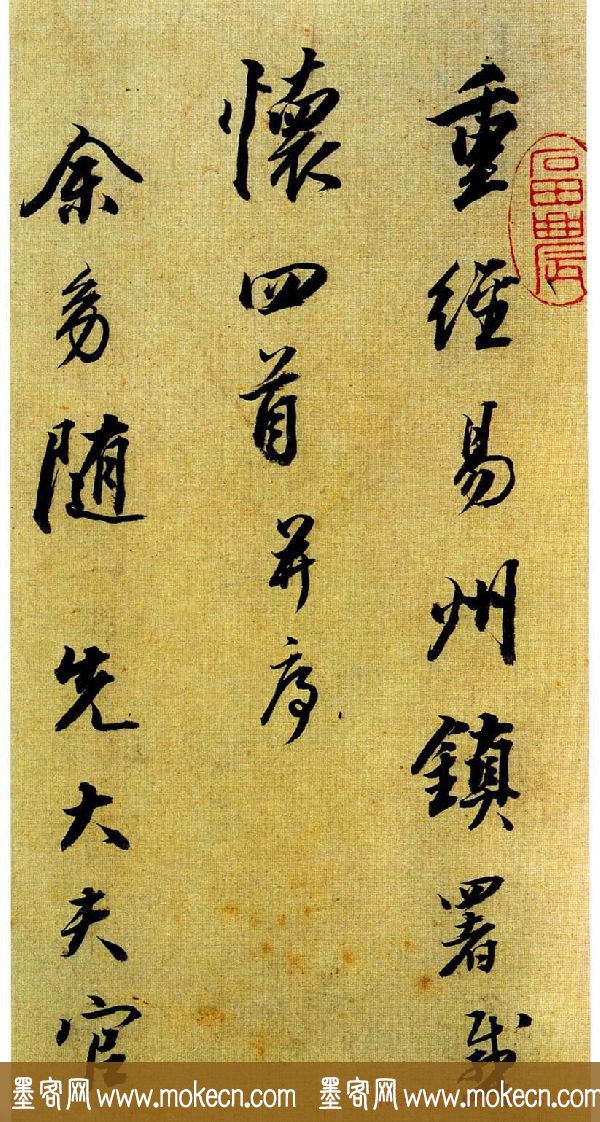 重經易州鎮署感
懷四首并序
余幼随先大夫官
墨客网 www.mokecn.com 墨客网 www.mokecn.com